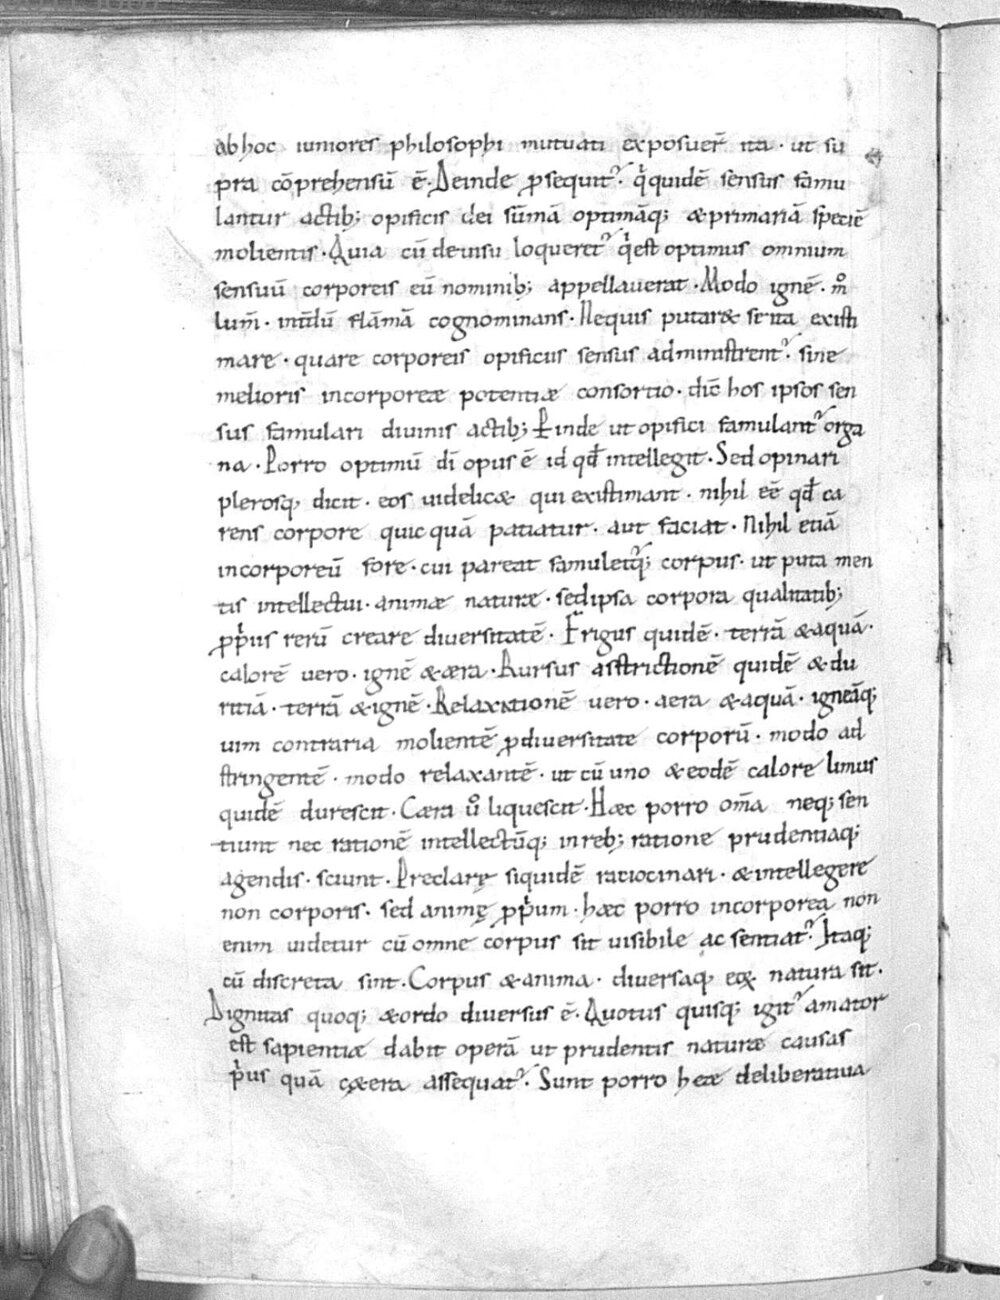 ab hoc iuniores philosophi mutuati exposuer̄ ita · ut su
pra cōprehensū ē · Deinde ꝓsequit᷑ · qͥquidē sensus famu
lantur actib; opificis dei sūmā optimāq; & primariā speciē
molientis · Quia cū de uisu loqueret᷑ qͥ est optimus omnium
sensuū corporeis eū nominib; appellauerat · Modo ignē · m̊
lum̄ · int̄dū flāmā cognominans · Nequis putar& se ita existi
mare · quare corporeis opificiis sensus administrent᷑ · sine
melioris incorporeæ potentiæ consortio · dic̄ hos ipsos sen
sus famulari diuinis actib; Ꝓinde ut opifici famulant᷑ orga
na · Porro optimū dī opus ē id qđ intellegit · Sed opinari
plerosq; dicit · eos uidelic& qui existimant · nihil eē qđ ca
rens corpore quicquā patiatur · aut faciat · Nihil etiā
incorporeū fore · cui pareat famuletq᷑; corpus · ut puta men
tis intellectui · animæ naturæ · sed ipsa corpora qualitatib;
ꝓpͥus rerū creare diuersitatē · Frigus quidē · terrā & aquā ·
calorē uero · ignē & æra · Rursus asstrictionē quidē & du
ritiā · terrā & ignē · Relaxationē uero · aera & aquā · igneāq;
uim contraria molientē ꝓ diuersitate corporū · modo ad
stringentē · modo relaxantē · ut cū uno & eodē calore limus
quidē durescit · Cæra ů liquescit · Hæc porro om̄a neq; sen
tiunt nec rationē intellectūq; in reb; ratione prudentiaq;
agendis · sciunt · Preclarę siquidē ratiocinari · & intellegere
non corporis · sed animę ꝓpͥum · hæc porro incorporea non
enim uidetur cū omne corpus sit uisibile ac sentiat᷑ · Itaq;
cū discreta sint · Corpus & anima · diuersaq; eoꝝ natura sit ·
Dignitas quoq; & ordo diuersus ē · Quotus quisq; igit᷑ amator
est sapientiæ dabit operā ut prudentis naturæ causas
pͥus quā c&era assequat᷑ · Sunt porro heæ deliberatiua